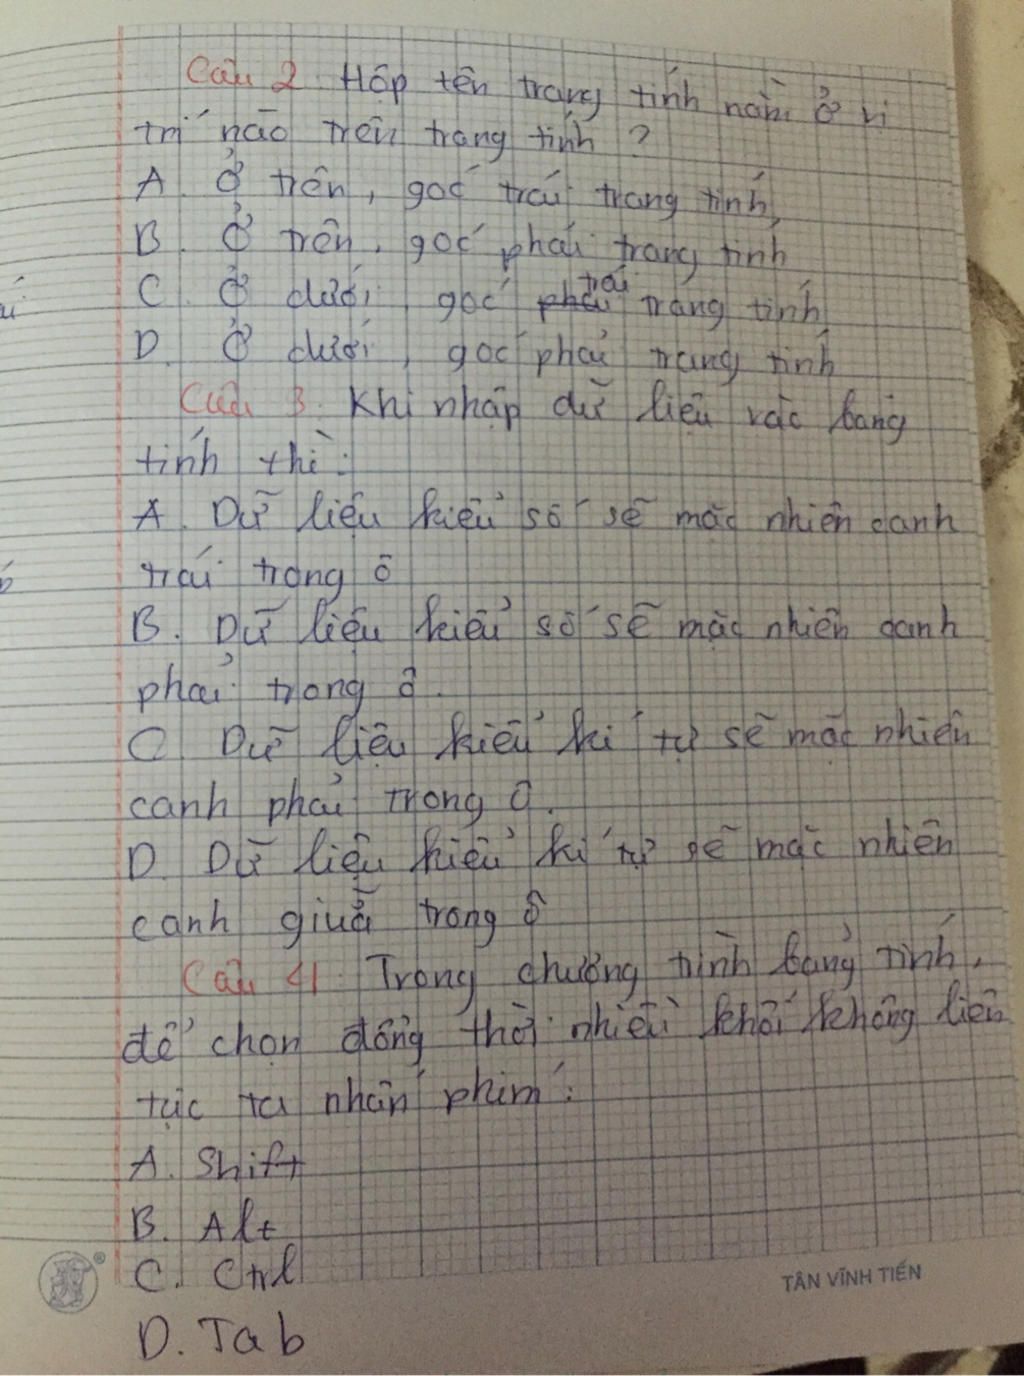 Câu 2. Hộp tên trang tính nằm ở vị
trí nào trên trang tính ?
A. Ở trên, góc trái trang tính
B. Ở trên, góc phải trang tính
C. Ở dưới, góc trái trang tính
D. Ở dưới, góc phải trang tính
Câu 3. Khi nhập dữ liệu vào bảng
tính thì:
A. Dữ liệu kiểu số sẽ mặc nhiên canh
trái trong ô
B. Dữ liệu kiểu số sẽ mặc nhiên canh
phải trong ô.
C. Dữ liệu kiểu kí tự sẽ mặc nhiên
canh phải trong ô.
D. Dữ liệu kiểu kí tự sẽ mặc nhiên
canh giữa trong ô
Câu 4. Trong chương trình bảng tính,
để chọn đồng thời nhiều khối không liên
tục ta nhấn phím:
A. Shift
B. Alt
C. Ctrl
D. Tab
TÂN VĨNH TIẾN